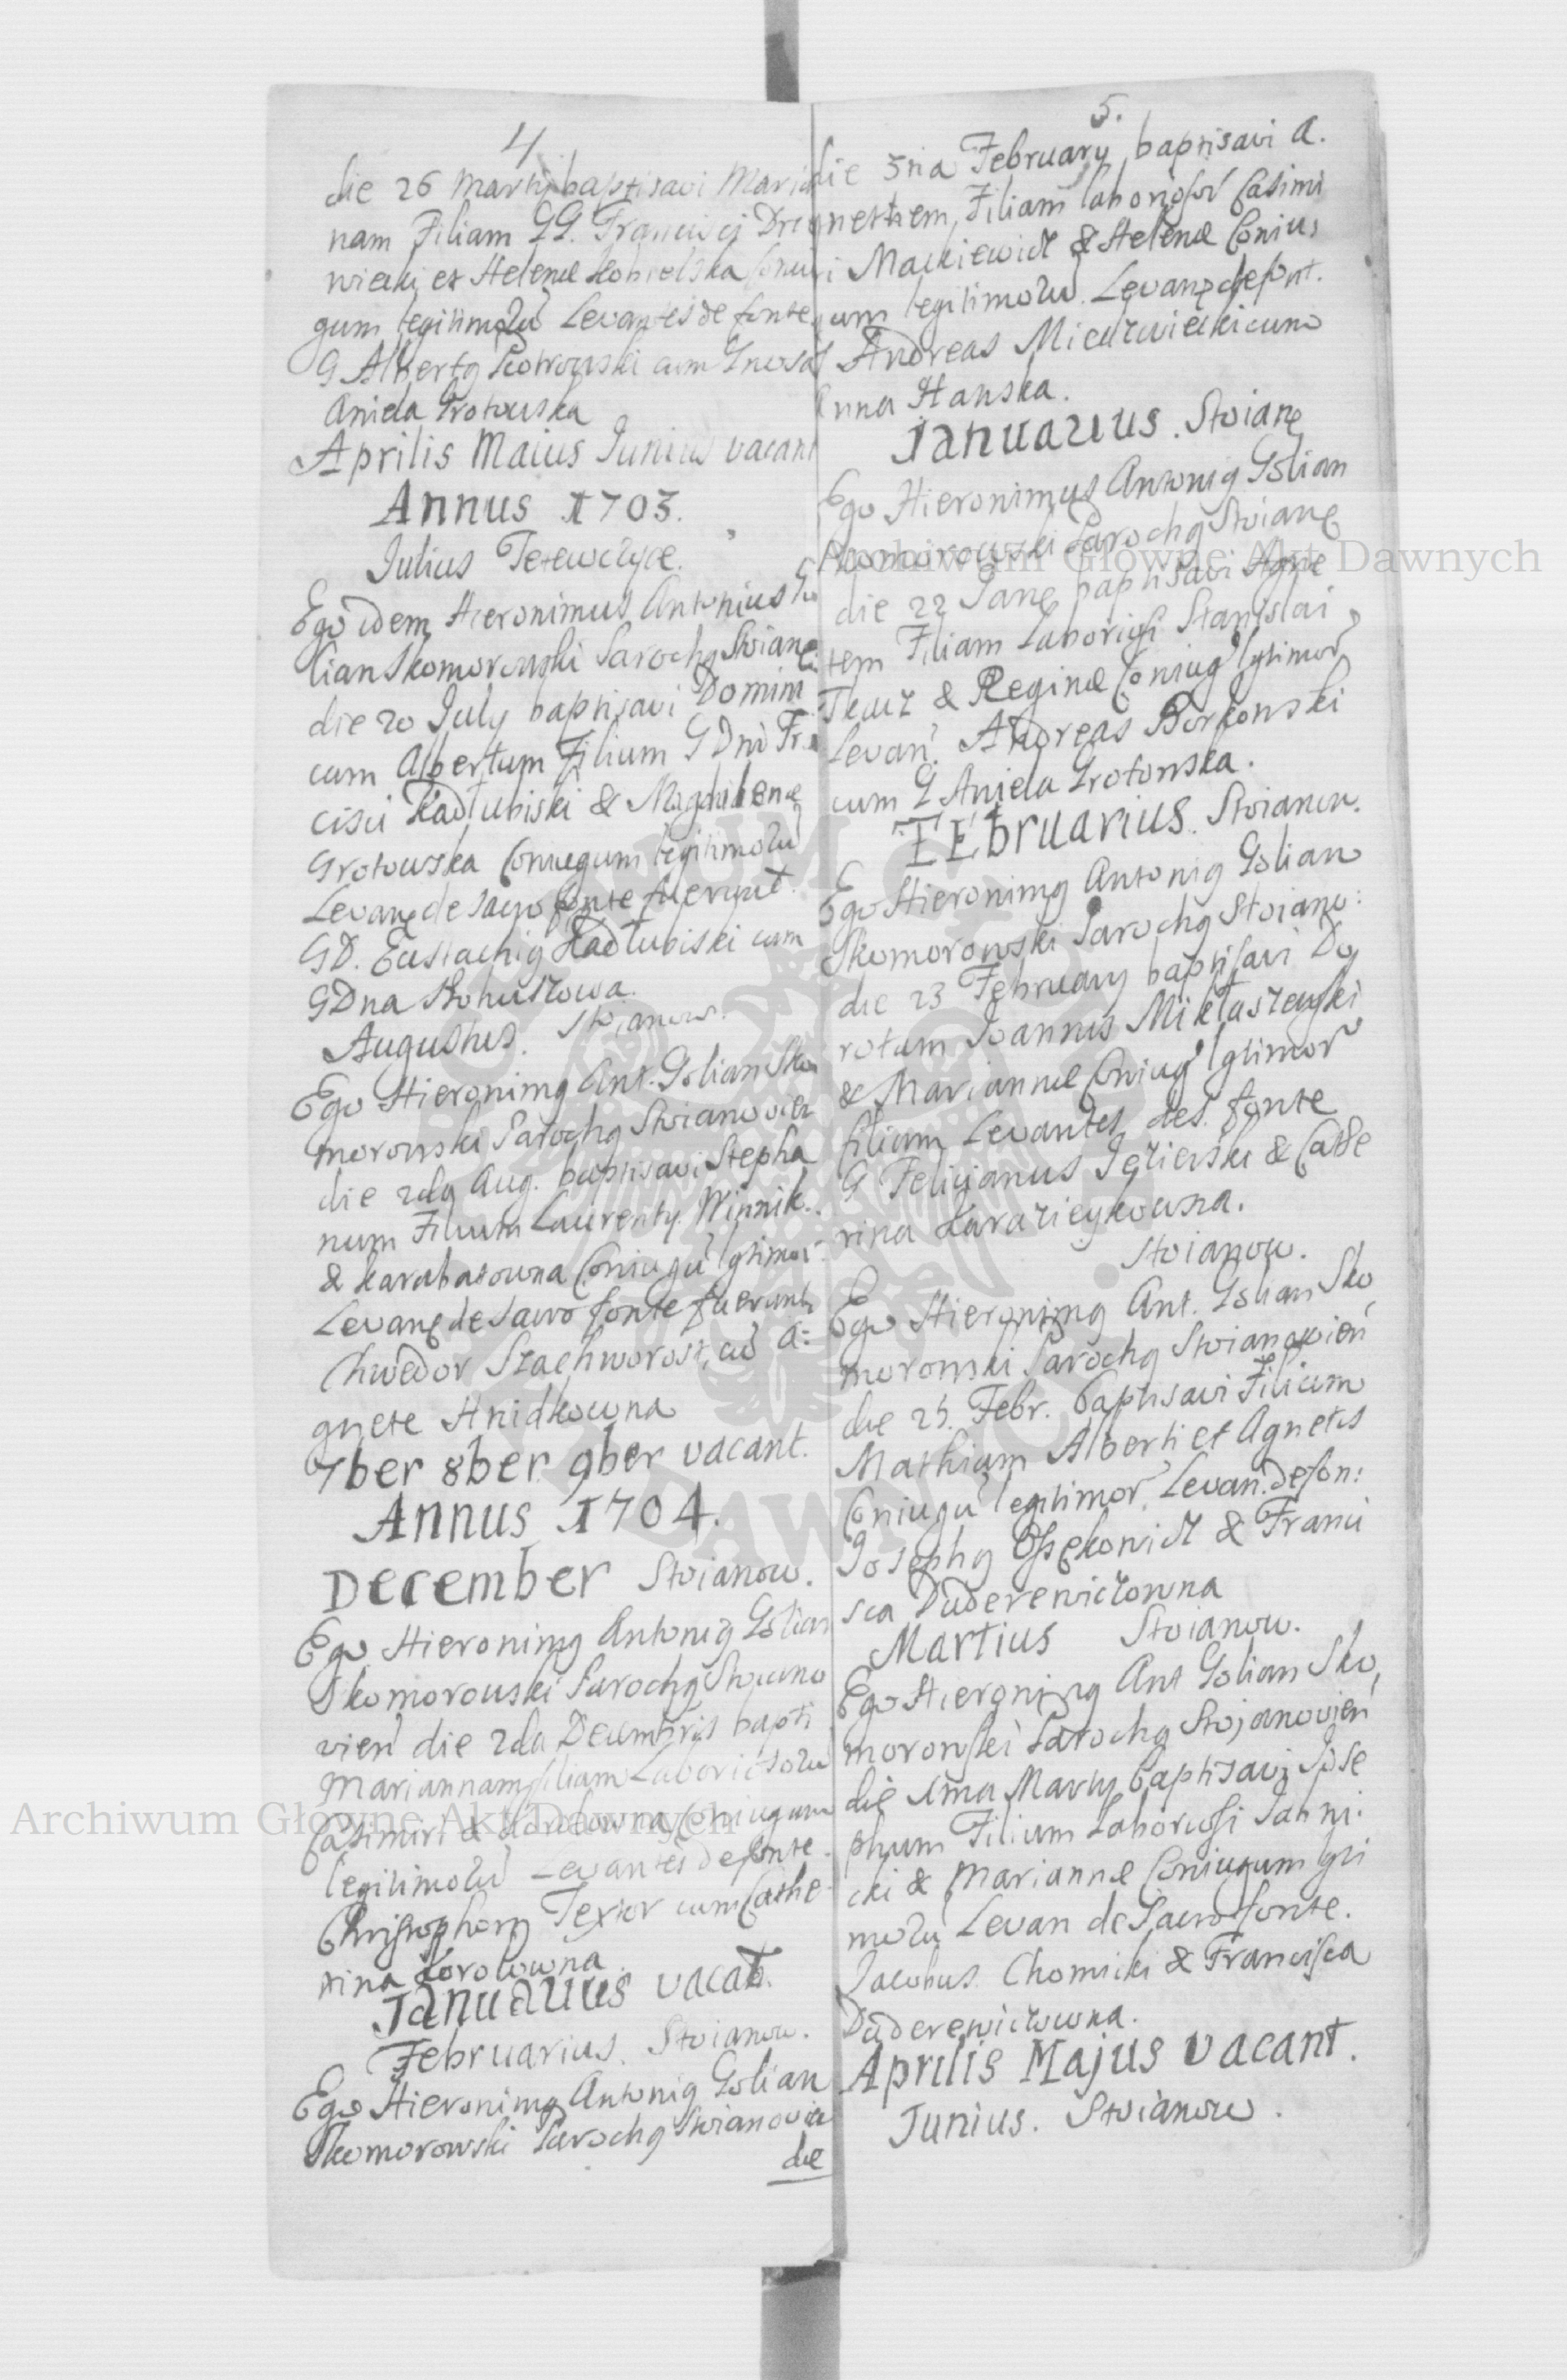 4
die 26 Martij baptisavi Maria
nam Filiam GG. Francisci Drze
wiecki et Helenæ Coniu
gum legitimorũ Levantes de fonte
G Albertg Piotrowski cum Gnosa
Aniela Grotowska
Aprilis Maius Junius vacant
Annus 1703.
Iulius Tetewczyce.
Ego idem Hieronimus Antonius Go
lian Skomorowski Parochg Stoiane
die 20 July baptisavi Domini
cum Albertum Filium G Dni Fran
cisci Kadłubiski & Magdalenę
Grotowska Coniugum legitimorũ
Levanę de sacro fonte fuerunt.
GD. Eustachig Kadłubiski cum
GDna Skohuszowa.
Augustus. Stoianow.
Ego Hieronimg Ant. Golian Sko
morowski Parochg Stoianovień
die 2da Aug. baptisavi Stepha
num Filium Laurenty Winnik.
& Karabasowna Coniugũ lgtimor.
Levanę de sacro fonte fuerunt
Chwedor Szachworost, cũ A=
gnete Hnidkowna
7ber 8ber 9ber vacant.
Annus 1704.
December Stoianow.
Ego Hieronimg Antonig Golian
Skomorowski Parochg Stoiano
vień die 2da Decembris bapti
Mariannam filiam Laboriosorũ
Casimiri & Korolowna Coniugum
legitimorũ Levantes de fonte.
Christophorg Textor cum Cathe
rina Korolowna.
Ianuarius vacat.
Februarius. Stoianow.
Ego Hieronimg Antonig Golian
Skomorowski Parochg Stoianovie
die
5.
die 5ta February baptisavi A.
gnethem, Filiam laboriosor Casimi
ri Mackiewicz & Helenæ Coniu,
gum legitimorũ. Levanę de font.
Andreas Mieczwieckicum
Anna Hanska.
Ianuarius. Stoianę
Ego Hieronimus Antonig Golian
Skomorowski Parochg Stoianę
die 22 Janę baptisavi Agne
tem Filiam Laboriosi Stanislai
Tkacz & Reginæ Coniug lgtimor
Levan. Andreas Borkowski
cum G Aniela Grotowska.
FEbruarius. Stoianow.
Ego Hieronimg Antonig Golian
Skomorowski Parochg Stoiano:
die 23 February baptisavi Do
rotam Joannis Mikłaszewski
& Mariannæ Coniug lgtimor
filiam Levantes de s. fonte
G Felicjanus Jezierski & Cathe
rina
Stoianow.
Ego Hieronimg Ant. Golian Sko
morowski Parochg Stoianovień
die 25. Febr. baptisavi Filium
Mathiam Alberti et Agnetis
Coniugũ legitimor. Levan. de fon:
Josephg Ossękowicz & Franci
sca Duderewiczowna
Martius Stoianow.
Ego Hieronimg Ant Golian Sko,
morowski Parochg Stojanovień
die 1ma Martij baptisavi Jose
phum Filium Laboriosi Jan ni.
cki & Mariannæ Coniugum lgti
morũ Levan de Sacro fonte.
Jacobus Chomicki & Francisca
Duderewiczowna.
Aprilis Majus vacant.
Junius. Stoianow.
Archiwum Główne Akt Dawnych
Archiwum Główne Akt Dawnych